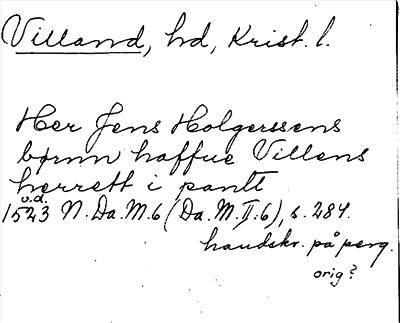 Villand, hd, Krist. l.
Her Jens Holgerssens
børnn haffue Villens
herrett i pantt
u.d.
1523 N.Da.M.6 (Da.M.II.6), s. 284.
handskr. på perg.
orig?